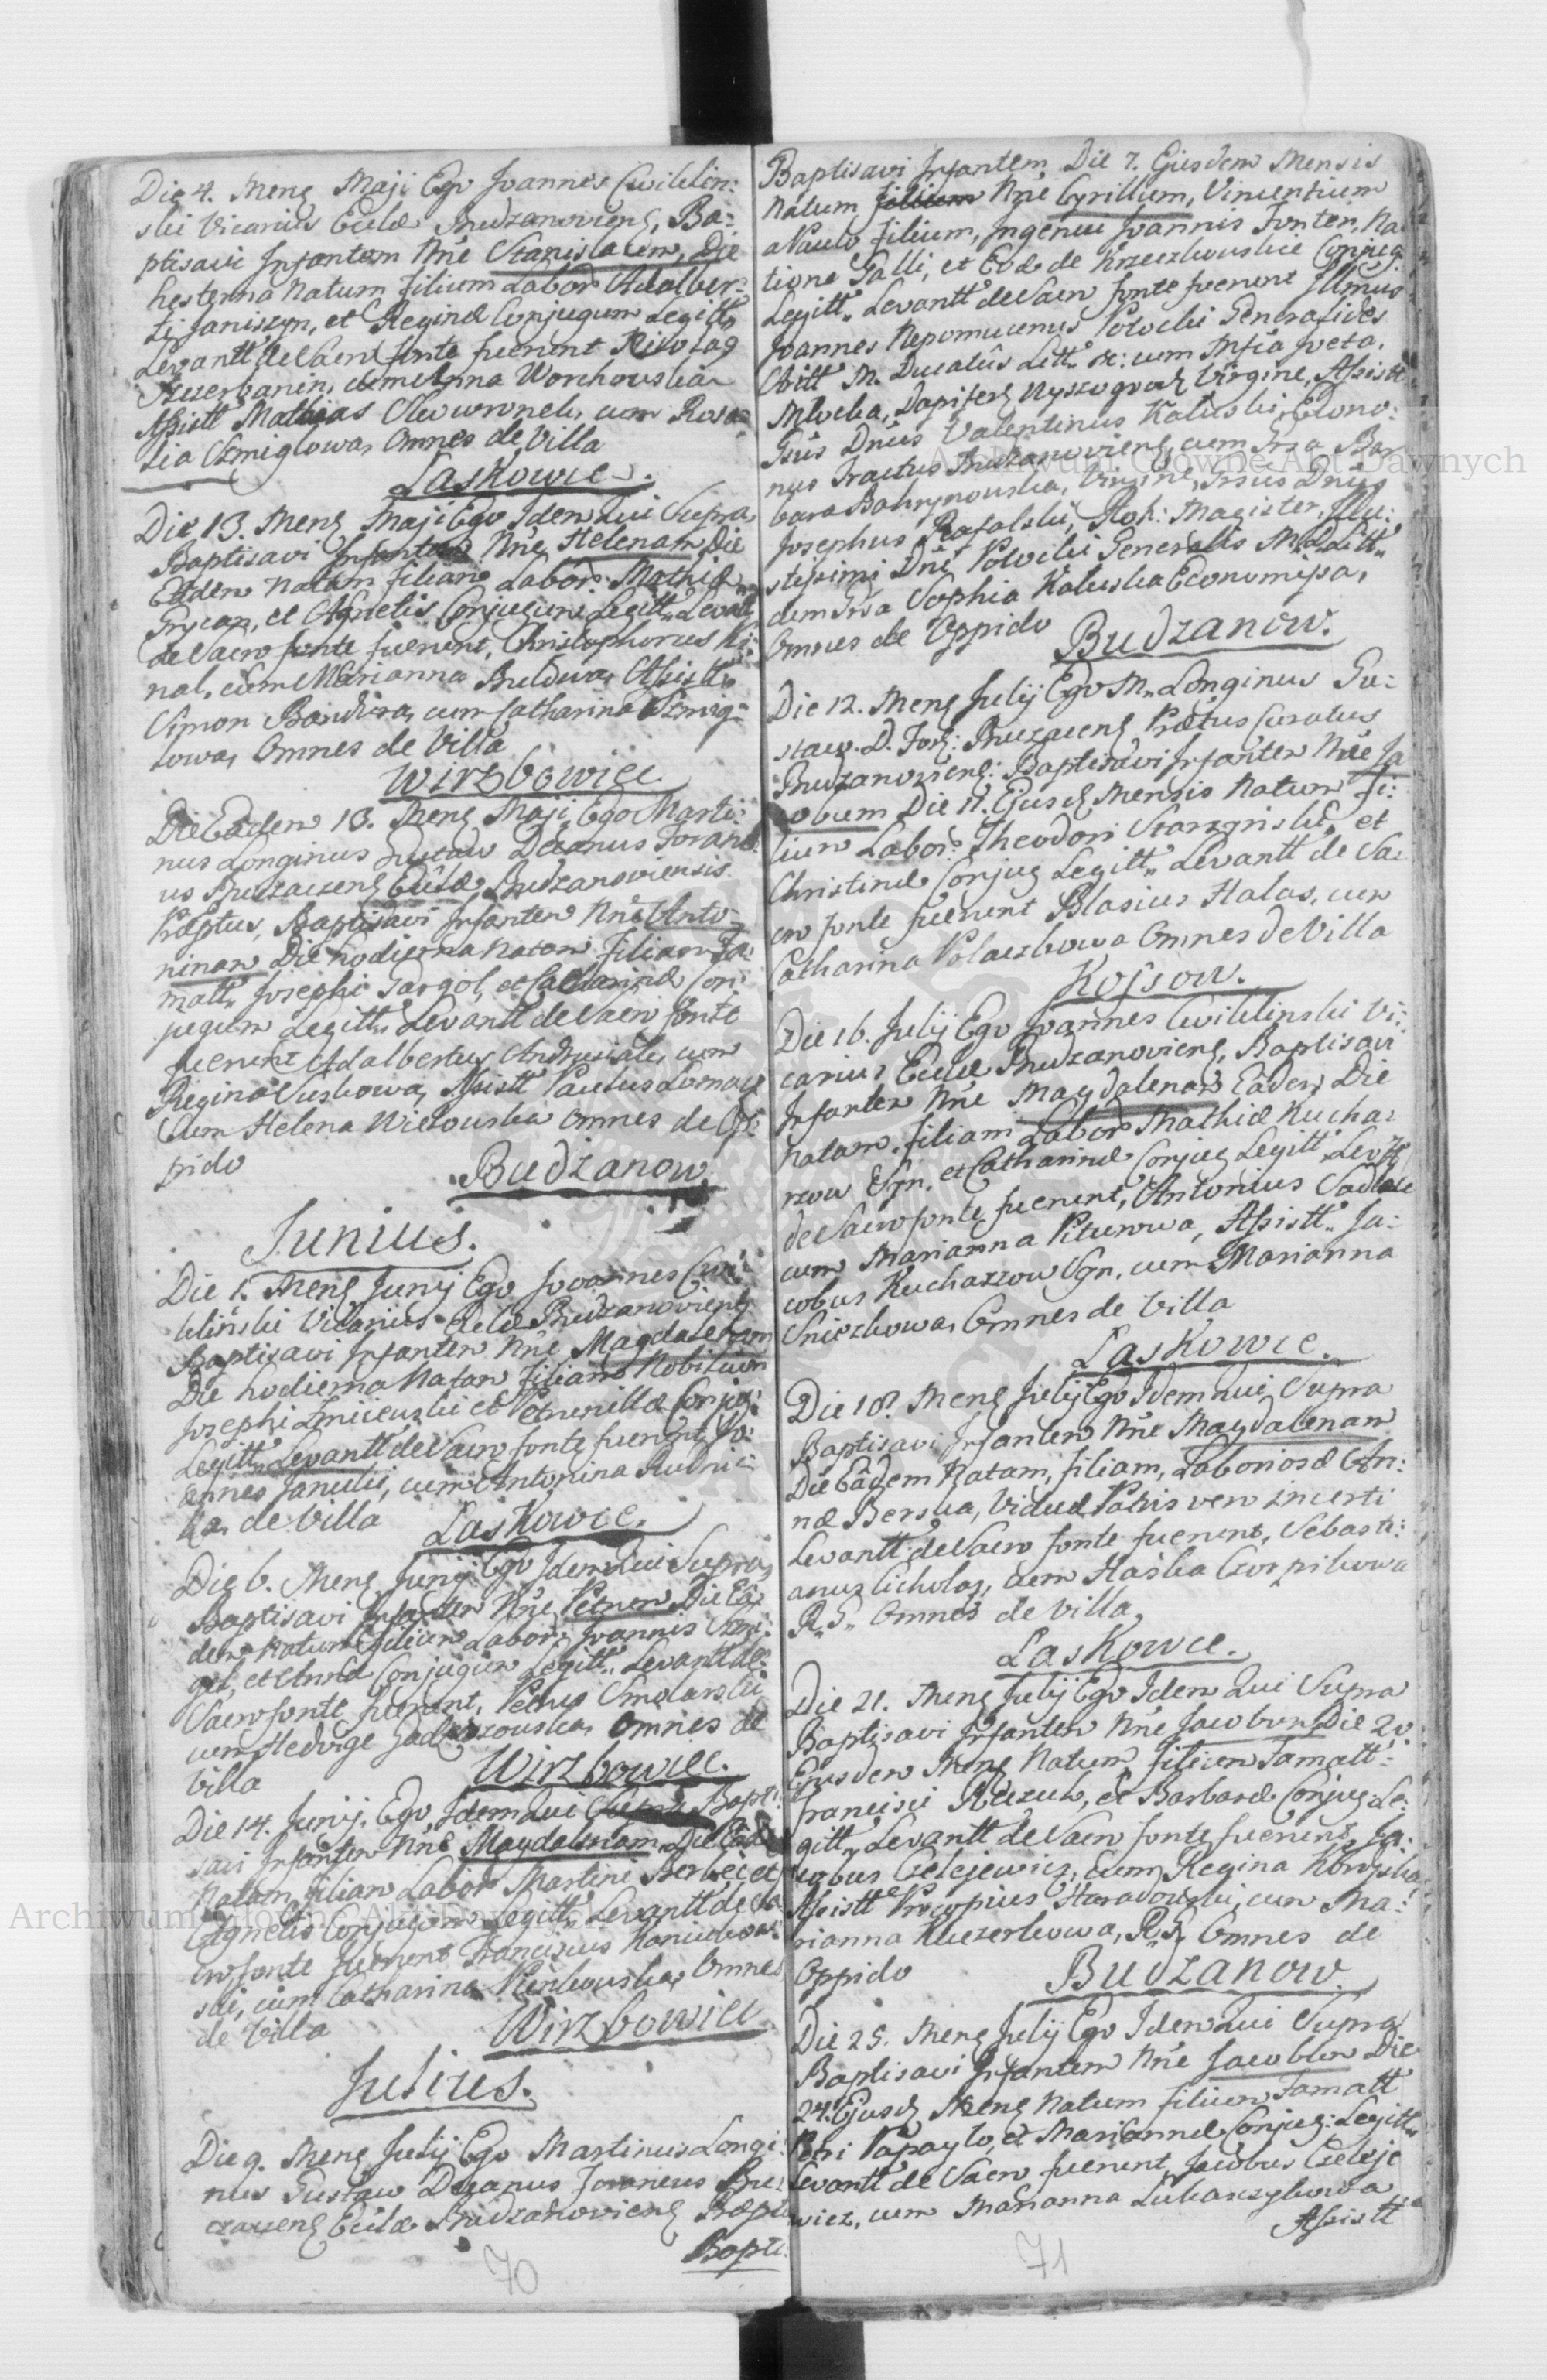 Die 4. Mens Maji Ego Joannes Cwiklin:
ski Vicarius Eccla Budzanoviens, Ba:
ptisavi Infantem Nne Stanislaum, Die
hesterna Natum Filium Labor Adalber:
ti Janiszyn, et Regina Conjugum Legitt,
Levantt de Sacro fonte fuerunt
cum Anna Worchouska
Assistt Mathias Skowronek, cum Rosa
lia Szmiglowa, Omnes de Villa
Laskowce.
Die 13. Mens Maji Ego Idem Qui Supra,
Baptisavi Infantem Nne Helenam Die
Eadem Natam Filiam Labor: Mathia
Grycan, et Agnetis Conjugum Legitt, Levatt
de Sacro fonte fuerunt, Christophorus Ki:
nal, cum Marianna Buldwa, Assistt,
Simon Bandura, cum Catharina Szmig:
lowa, Omnes de Villa
Wirzbowiec
Die Eadem 13. Mens Maji, Ego Marti:
nus Longinus Gustaw Decanus Forane:
us Buczacens Eccla Budzanoviensis
Praeptus, Baptisavi Infantem Nne Anto:
ninam Die hodierna Natam Filiam Fa:
matt, Josephi Gargol, et Catharina Con:
jugum Legitt, Levantt de Sacro fonte
fuerunt Adalbertus Andrusiak, cum
Regina Suskowa, Assistt Paulus
Cum Helena Wielouska Omnes de Op:
pido
Budzanow.
Junius.
Die 1. Mens Junij Ego Joannes Cwi:
klinski Vicarius Eccla Budzanoviens
Baptisavi Infantem Nne Magdalenam
Die hodierna Natam Filiam Nobilium
Josephi et Petronilla Conjug:
Legitt, Levantt de Sacro fonte fuerunt, Jo:
annes Janicki, cum Antonina Rudnic
ka, de Villa
Laskowce.
Die 6. Mens Junij Ego Idem Qui Supra,
Baptisavi Infantem Nne Petrum Die Ea:
dem Natum Filium Labor: Joannis Szmi:
giel, et Anna Conjugum Legitt, Levantt de
Sacro fonte fuerunt, Petrus Smolarski,
cum Hedvige Omnes de
Villa
Wirzbowiec.
Die 14. Junij, Ego Idem Qui Supra Bapti:
savi Infantem Nne Magdalenam Die Eade
Natam Filiam Labor Martini Berbec, et
Agnetis Conjugum Legitt, Levantt de Sa
cro fonte fuerunt Franciscus Haniukow:
ski, cum Catharina Omnes
de Villa
Wirzbowiec
Julius.
Die 9. Mens Julij Ego Martinus Longi:
nus Gustaw Decanus Foraneus Bu:
czacens Eccla Budzanoviens Praept
Bapti:
70
Baptisavi Infantem, Die 7. Ejusdem Mensis
Natum Nne Cyrillum, Vincentium
a Paulo Filium, Ingenui Joannis Fonten, Na:
tione Galli, et Eva de Krzeczkouskie Conjug
Legitt, Levantt de Sacro fonte fuerunt Illmus
Joannes Nepomucenus Potocki Generalides
Artt M. Ducatus Litt, &: cum Mfica Iveta,
Mlocka, Dapifer Wyszogrod Virgine, Assistt
Gsus Dnus Valentinus Kaluski, Econo:
mus Tractus Budzanoviens, cum Gsa Bar
bara Bahrynouska, Virgine, Gsus Dnus
Josephus Rafalski, Roh: Magister, Illu:
strissimi Dni Potocki Generalis M. D. Litt,
dem Gsa Sophia Kaluska Economissa,
Omnes de Oppido
Budzanow.
Die 12. Mens Julij Ego M. Longinus Gu:
staw. D. For: Buczacens Praptus Curatus
Budzanoviens: Baptisavi Infantem Nne Ja
cobum Die 11. Ejusd Mensis Natum Fi:
lium Labor: Theodori Starzynski, et
Christina Conjug Legitt, Levantt de Sa:
cro fonte fuerunt Blasius Halas, cum
Catharina Polaczkowa Omnes de Villa
Kossow.
Die 16. Julij Ego Joannes Cwiklinski Vi:
carius Eccla Budzanoviens, Baptisavi
Infantem Nne Magdalenam Eadem Die
Natam, Filiam Labor Mathia Kucha:
rzow Syn, et Catharina Conjug Legitt, Levtt
de Sacro fonte fuerunt, Antonius Sadlak
cum Marianna Piturowa, Assistt, Ja:
cobus Kucharzow Syn, cum Marianna
Sniezkowa, Omnes de Villa
Laskowce.
Die 18. Mens Julij Ego Idem Qui Supra
Baptisavi Infantem Nne Magdalenam
Die Eadem Natam, Filiam, Laboriosa An:
na Berska, Vidua, Patris vero incerti
Levantt de Sacro fonte fuerunt, Sebasti:
anus Cicholaz, cum Haska Czornikowa
R. G. Omnes de Villa
Laskowce.
Die 21. Mens Julij Ego Idem Qui Supra
Baptisavi Infantem Nne Jacobum Die 20
Ejusdem Mens Natum, Filium Famatt:
Francisci et Barbara Conjug Le:
gitt, Levantt de Sacro fonte fuerunt, Ja:
cobus Czelejewicz, cum Regina
Assistt Procopius Haradouski, cum Ma:
rianna Kuczerkowa, R. G. Omnes de
Oppido
Budzanow.
Die 25. Mens Julij Ego Idem Qui Supra
Baptisavi Infantem Nne Jacobum Die
24. Ejusd Mens Natum Filium Famatt
Petri Papaylo, et Marianna Conjug: Legitt,
Levantt de Sacro fuerunt, Jacobus Czeleje
wicz, cum Marianna Lukaszykowa
Assistt
71
Archiwum Główne Akt Dawnych
Archiwum Główne Akt Dawnych